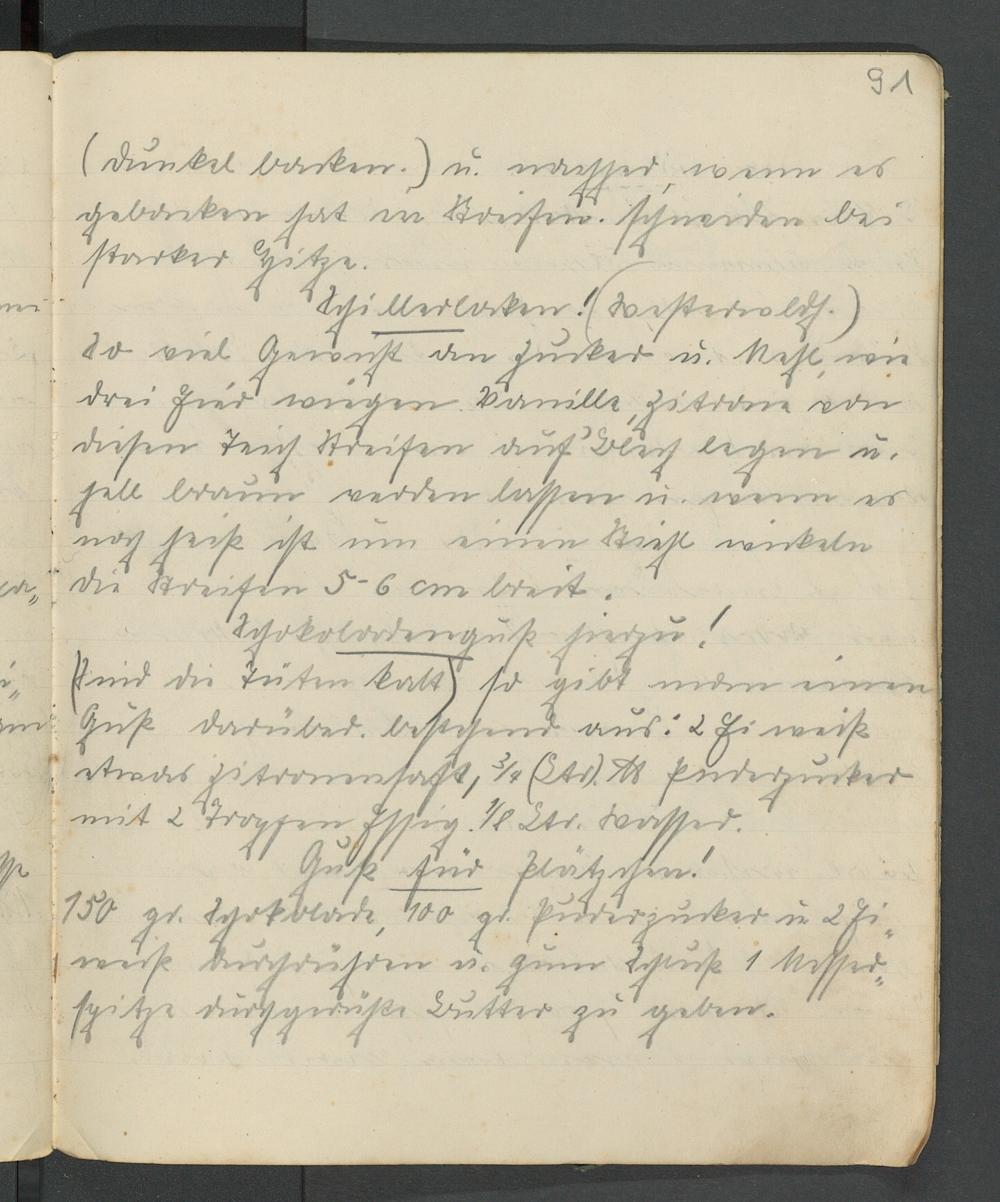 91
(dunkel backen.) u. nachher, wenn es
gebacken hat in Streifen. schneiden bei
starker Hitze.
Schillerlocken! (Westerwldh.)
So viel Gewicht an Zucker u. Mehl, wie
drei Eier wiegen Vanille, Zitrone von
diesen Teich Streifen auf Blech legen u.
hell braun werden lassen u. wenn es
noch heiß ist um einen Stiehl wickeln
die Streifen 5-6 cm breit.
Schokoladenguß hierzu!
(Sind die Tüten kalt) so gibt man einen
Guß darüber. bestehend aus: 2 Ei weiß
etwas Zitronensaft, 3/4 (Ltr). ℔ Puderzucker
mit 2 Tropfen Essig. 1/8 Ltr. Wasser.
Guß für Plätzchen!
150 gr. Schokolade, 100 gr. Puderzucker u 2 Ei„
weiß durchrühren u. zum Schluß 1 Messer„
spitze durchgerührte Butter zu geben.